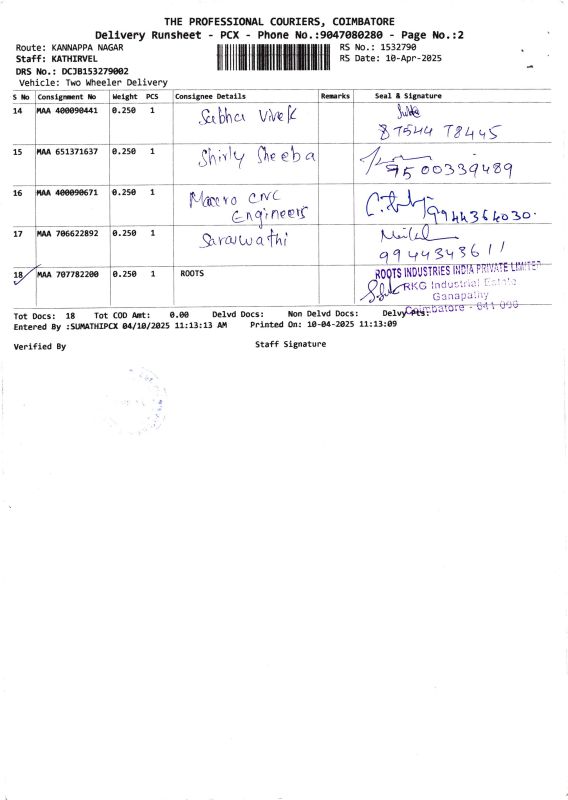 THE PROFESSIONAL COURIERS, COIMBATORE
Delivery Runsheet - PCX - Phone No.:9047080280 - Page No.:2
Route: KANNAPPA NAGAR RS No.: 1532790
Staff: KATHIRVEL RS Date: 10-Apr-2025
DRS No.: DCJB153279002
Vehicle: Two Wheeler Delivery
S No Consignment No Weight PCS Consignee Details Remarks Seal & Signature
14 MAA 400090441 0.250 1 Sabha Vivek
87544 78445
15 MAA 651371637 0.250 1 Shirly Sheeba
9500339489
16 MAA 400090671 0.250 1 Macro CNC
Engineers 9944364030.
17 MAA 706622892 0.250 1 Saraswathi
9944343611
18 MAA 707782200 0.250 1 ROOTS ROOTS INDUSTRIES INDIA PRIVATE LIMITED
RKG Industrial Estate
Ganapathy
Coimbatore - 641 006
Tot Docs: 18 Tot COD Amt: 0.00 Delvd Docs: Non Delvd Docs: Delvy Pts:
Entered By :SUMATHIPCX 04/10/2025 11:13:13 AM Printed On: 10-04-2025 11:13:09
Verified By Staff Signature